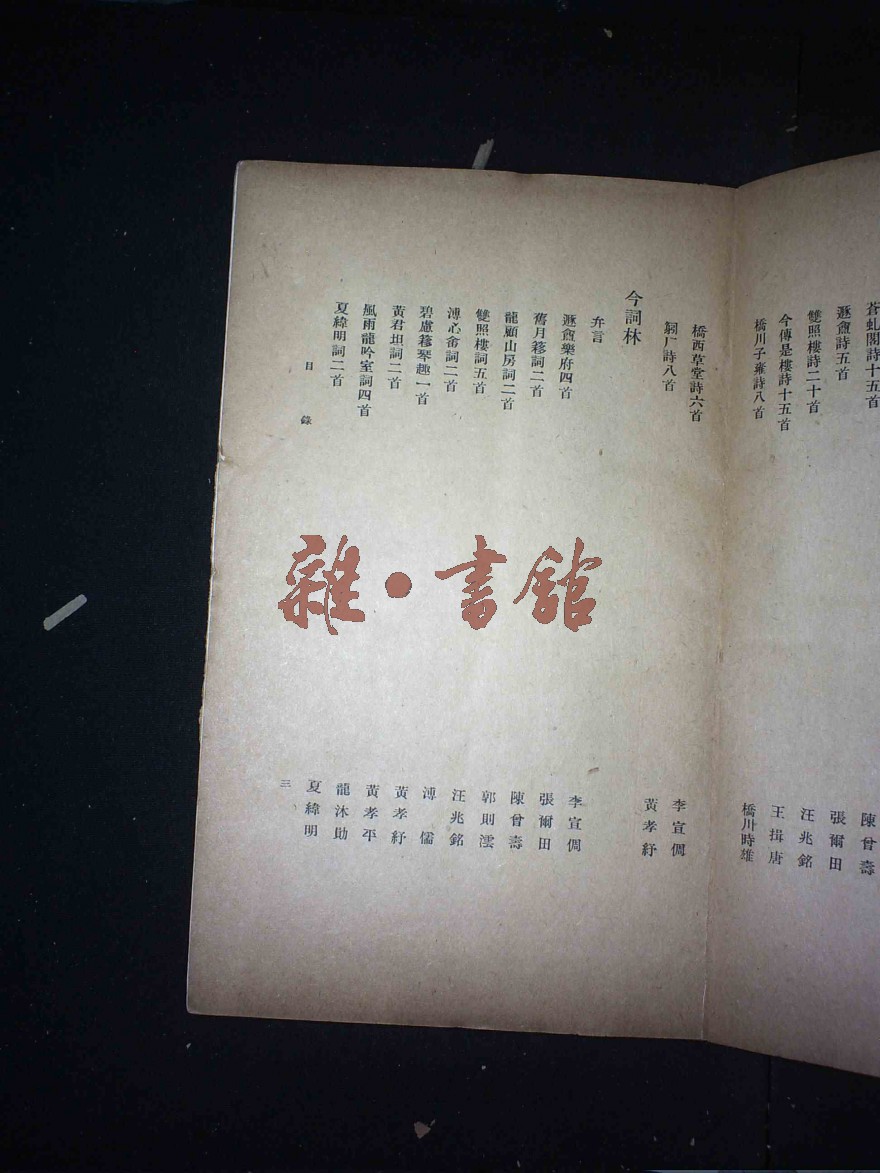 蒼虬閣詩十五首　陳曾壽
遯盦詩五首　張爾田
雙照樓詩二十首　汪兆銘
今傳是樓詩十五首　王揖唐
橋川子雍詩八首　橋川時雄
橋西草堂詩六首　李宣倜
匑厂詩八首　黃孝紓
今詞林
弁言
遯盦樂府四首　李宣倜
舊月簃詞二首　張爾田
龍顧山房詞二首　陳曾壽
雙照樓詞五首　郭則澐
溥心畬詞二首　汪兆銘
碧慮簃琴趣一首　溥儒
黃君坦詞二首　黃孝紓
風雨龍吟室詞四首　黃孝平
夏緯明詞二首　龍沐勛
目錄　夏緯明
三
雜・書館